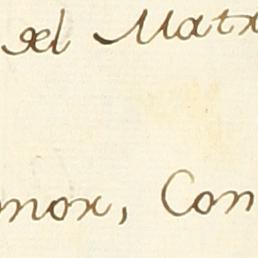 del Matr
mor, Con